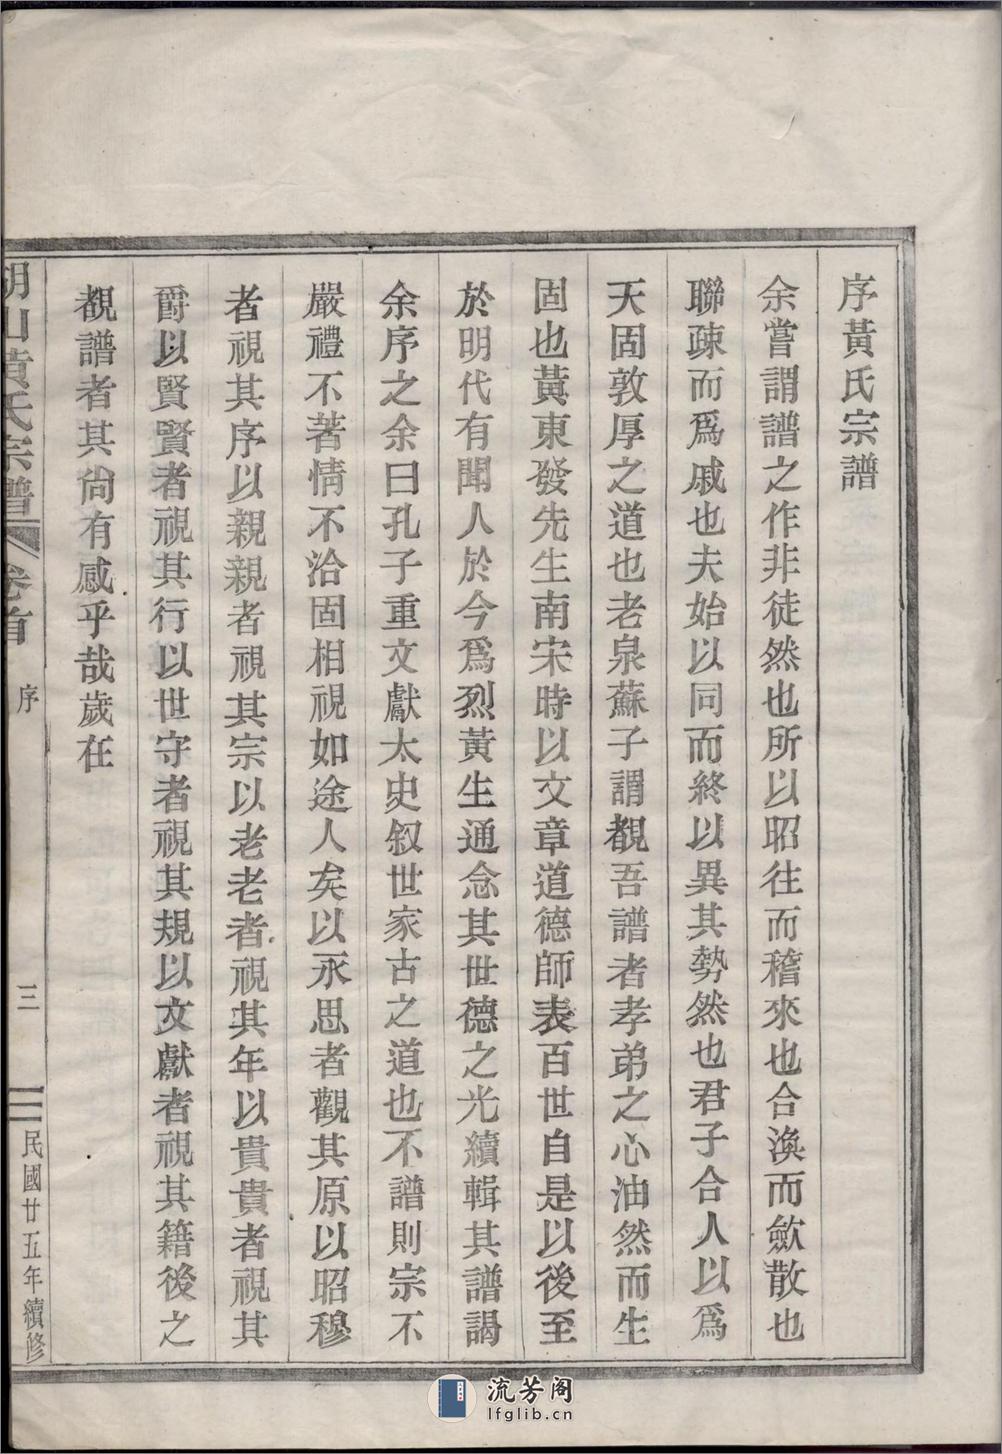 序黃氏宗譜
余嘗謂譜之作非徒然也所以昭往而稽來也合渙而歛散也
聯疎而爲戚也夫始以同而終以異其勢然也君子合人以爲
天固敦厚之道也老泉蘇子謂覩吾譜者孝弟之心油然而生
固也黃東發先生南宋時以文章道德師表百世自是以後至
於明代有聞人於今爲烈黃生通念其世德之光續輯其譜謁
余序之余曰孔子重文獻太史叙世家古之道也不譜則宗不
嚴禮不著情不洽固相視如途人矣以永思者觀其原以昭穆
者視其序以親親者視其宗以老老者視其年以貴貴者視其
爵以賢賢者視其行以世守者視其規以文獻者視其籍後之
覩譜者其尙有感乎哉歲在
胡山黃氏宗譜
卷首
序
三
民國廿五年續修
流芳阁
lfglib.cn